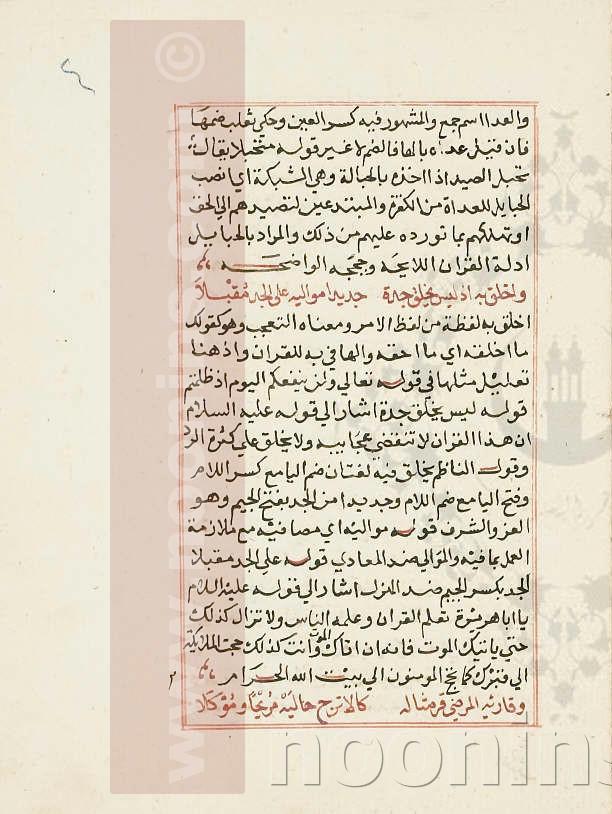 والعدا اسم جمع والمشهور فيه كسر العين وحكي ثعلب ضمها
فان قيل عداه بالها فالضم لا غير قوله متحبلا يقال
تحبل الصيد اذا اخذه بالحبالة وهي الشبكة اي انصب
الحبايل للعداة من الكفرة والمبتدعين لتصيدهم الي الحق
او تهلكهم بما تورده عليهم من ذلك والمراد بالحبايل
ادلة القران اللايحه وحججه الواضحه
واخلق به اذ ليس يخلق جدة جديدا مواليه علي الجد مقبلا
اخلق به لفظة من لفظ الامر ومعناه التعجب وهو كقولك
ما اخلقه اي ما احقه والها في به للقران واذ هنا
تعليل مثلها في قوله تعالي ولن ينفعكم اليوم اذ ظلمتم
قوله ليس يخلق جدة اشار الي قوله عليه السلام
ان هذا القران لا تنقضي عجايبه ولا يخلق علي كثرة الرد
وقول الناظم يخلق فيه لغتان ضم اليا مع كسر اللام
وفتح اليا مع ضم اللام وجديدا من الجد بفتح الجيم وهو
العز والشرف قوله مواليه اي مصافيه مع ملازمة
العمل بما فيه والموالي ضد المعادي قوله علي الجد مقبلا
الجد بكسر الجيم ضد الهزل اشار الي قوله عليه السلام
يا ابا هريرة تعلم القران وعلمه الناس ولا تزال كذلك
حتي ياتيك الموت فانه ان اتاك الموت وانت كذلك حجت الملايكة
الي قبرك كما تحج المومنون الي بيت الله الحرام
وقاريه المرضي قر مثاله كالاترج حاليه مريحا وموكلا
© www.noonin
noonins